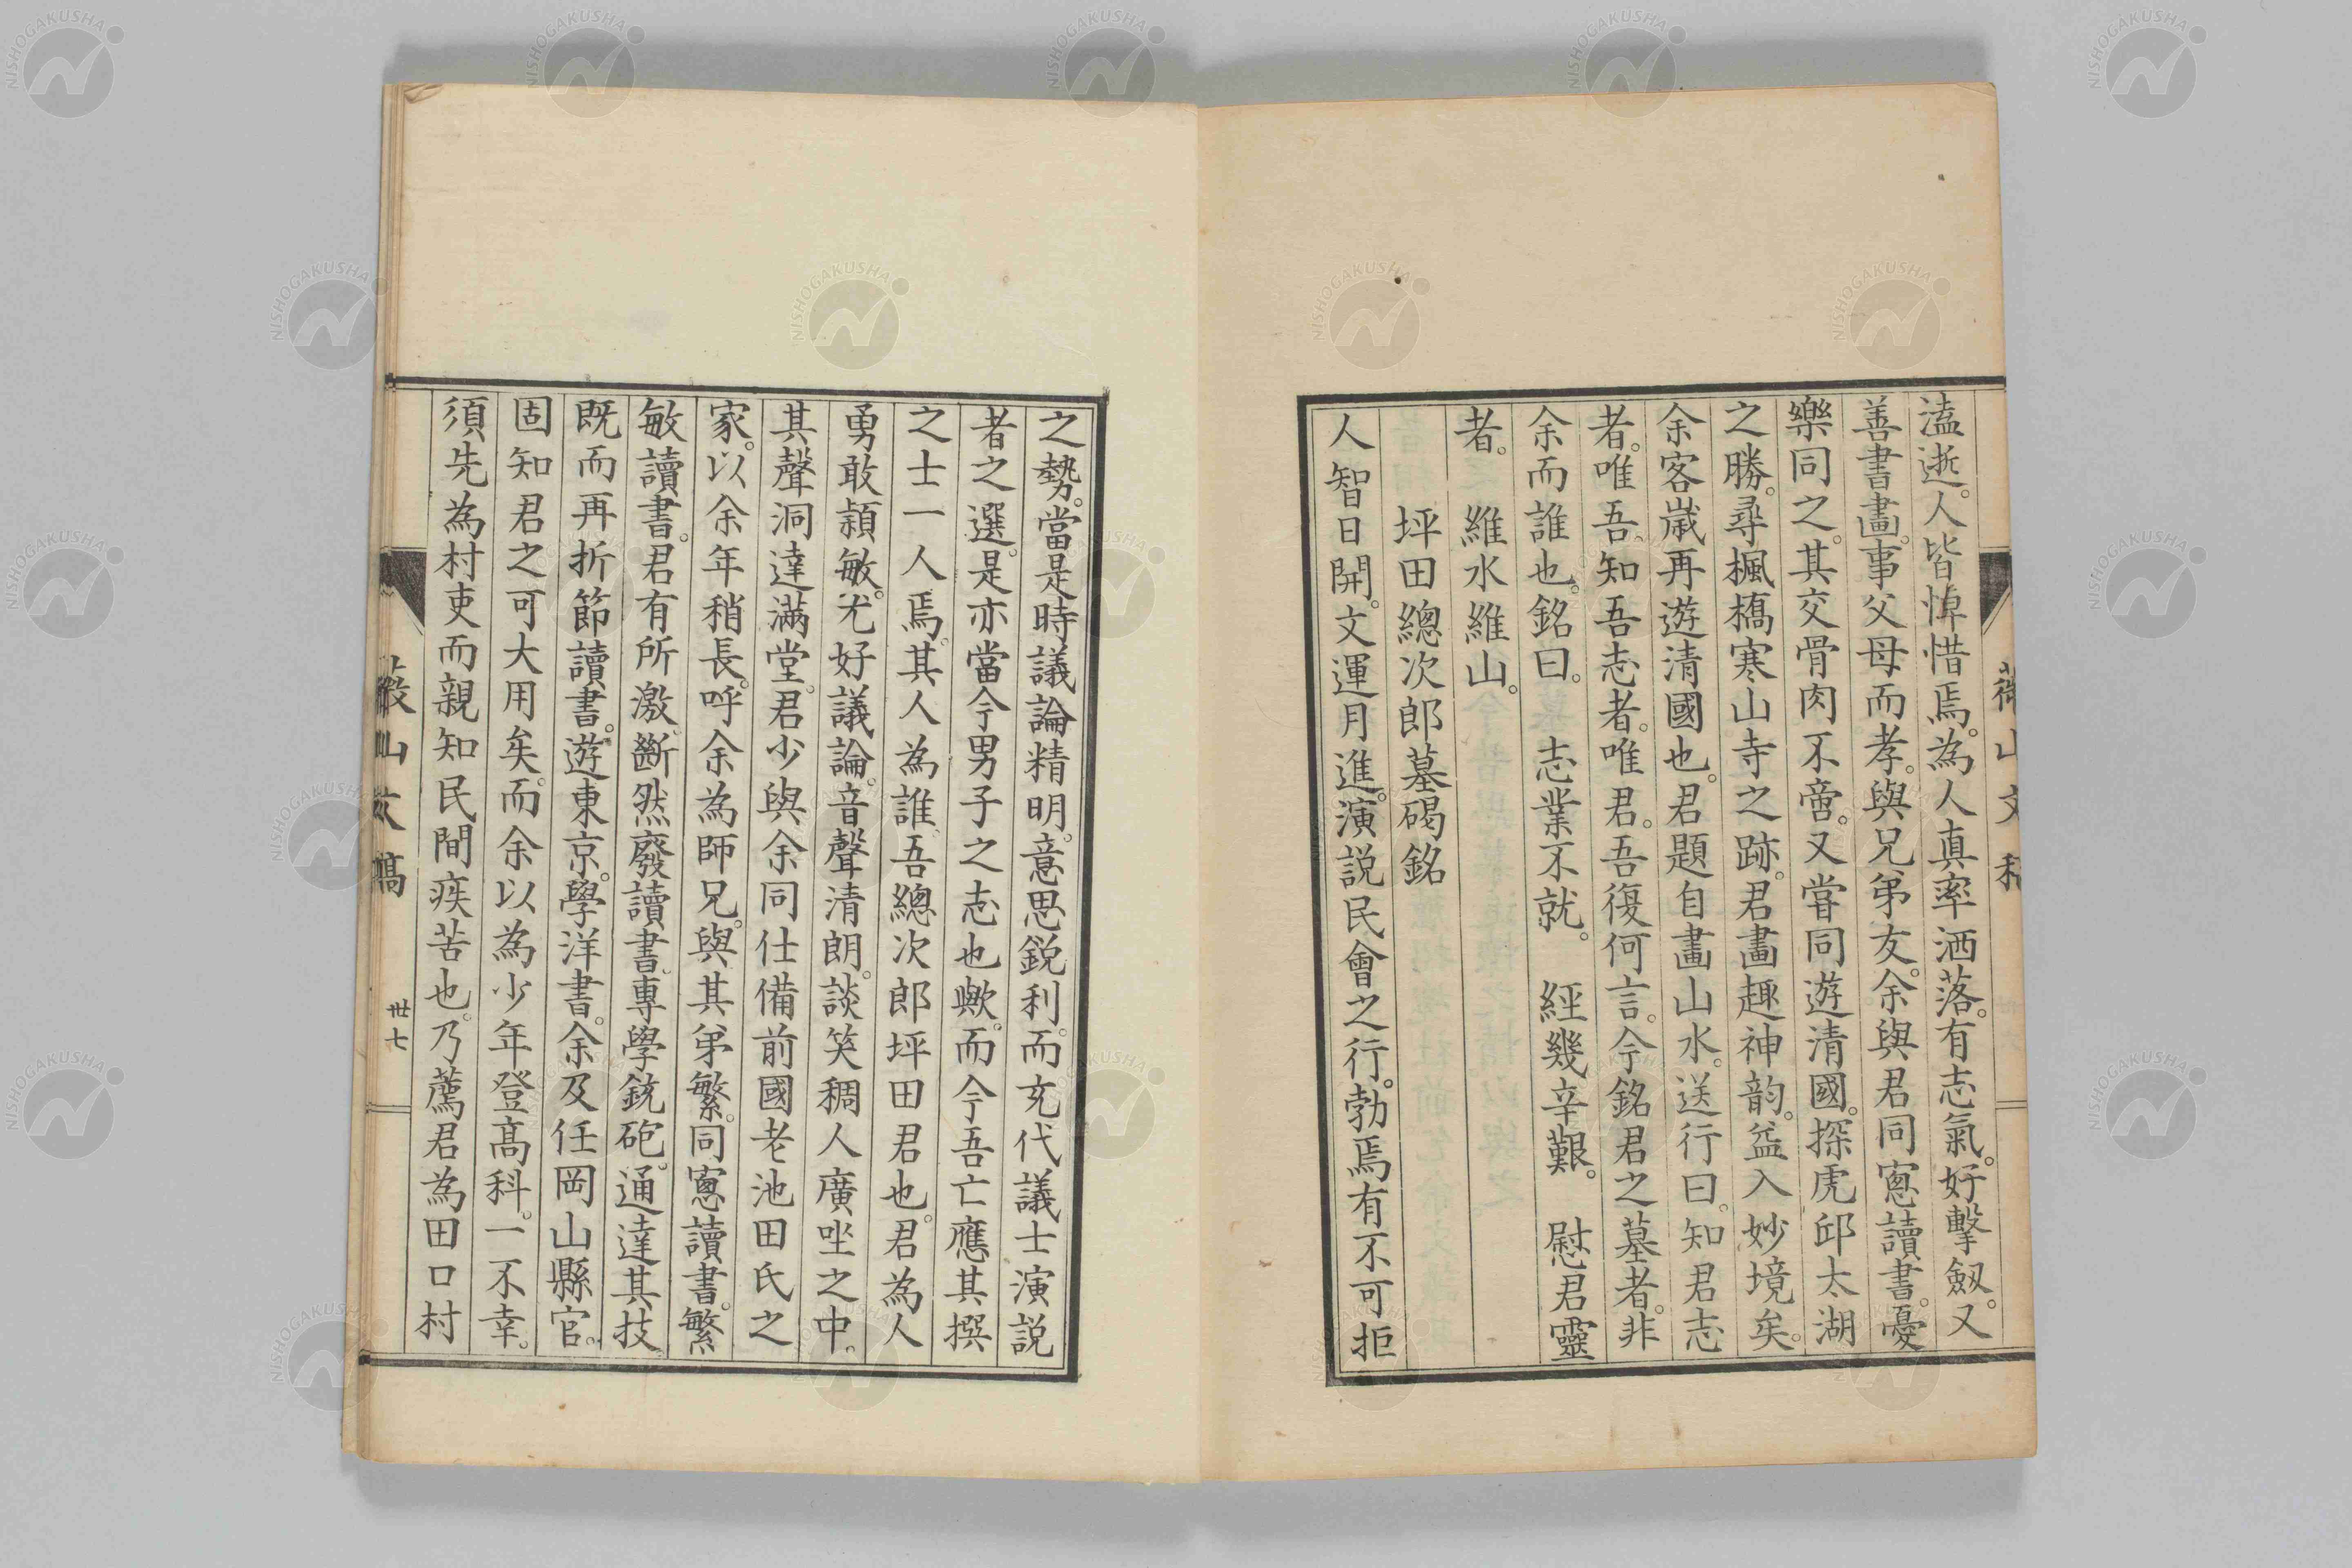 溘逝。人皆悼惜焉。為人真率洒落。有志氣。好擊劔。又
善書畫。事父母而孝。與兄弟友。余與君同窓讀書。憂
樂同之。其交骨肉不啻。又甞同遊清國。探虎邱太湖
之勝。尋楓橋寒山寺之跡。君畫趣神韵。益入妙境矣。
余客嵗再遊清國也。君題自畫山水。送行曰。知君志
者。唯吾。知吾志者。唯君。吾復何言。今銘君之墓者。非
余而誰也。銘曰。 志業不就。 經幾辛艱。 慰君靈
者。 維水維山。
坪田總次郎墓碣銘
人智日開。文運月進。演説民會之行。勃焉有不可拒
之勢。當是時議論精明。意思鋭利。而充代議士演説
者之選。是亦當今男子之志也歟。而今吾亡應其撰
之士一人焉。其人為誰。吾總次郎坪田君也。君為人
勇敢頴敏。尤好議論。音聲清朗。談笑稠人廣坐之中。
其聲洞達滿堂。君少與余同仕備前國老池田氏之
家。以余年稍長。呼余為師兄。與其弟繁。同窓讀書。繁
敏讀書。君有所激。斷然廢讀書。專學銃砲。通達其技
既而再折節讀書。遊東京。學洋書。余及任岡山縣官。
固知君之可大用矣。而余以為少年登髙科。一不幸。
須先為村吏而親知民間疾苦也。乃薦君為田口村
山文稿
卅七
NISHOGAKUSHA